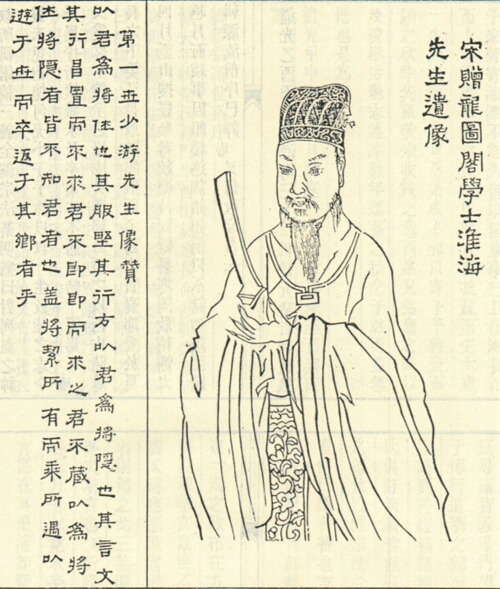 宋贈龍圖閣學士淮海
先生遺像
第一世少游先生像贊
以君爲將仕也其服野其行方以君爲將隱也其言文
其行昌置而不求君不即即而求之君不藏以爲將
仕將隱者皆不知君者也盖將絜所有而乘所遇以
遊于世而卒返于其鄉者乎